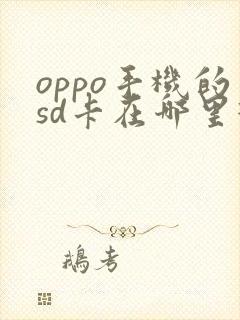 oppo手機的
sd卡在哪里
鵝考